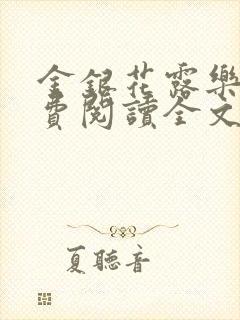 金銀花露樂
費閱讀全文
夏聽音